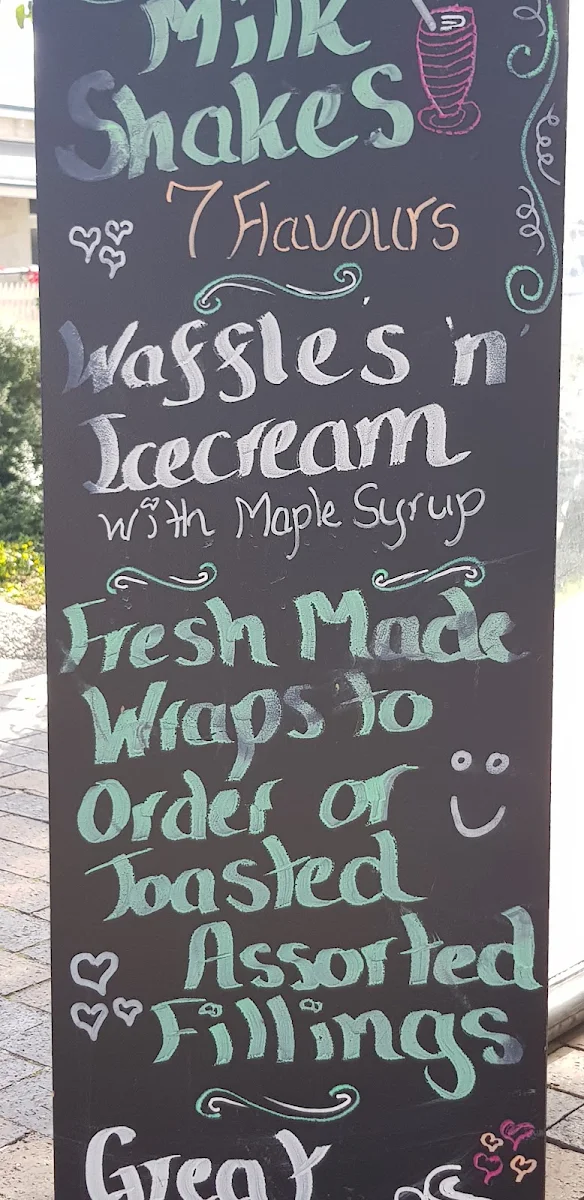 Milk
Shakes
7 Flavours
Waffle's 'n'
Icecream
with Maple Syrup
Fresh Made
Wraps to
Order or
Toasted
Assorted
Fillings
Great